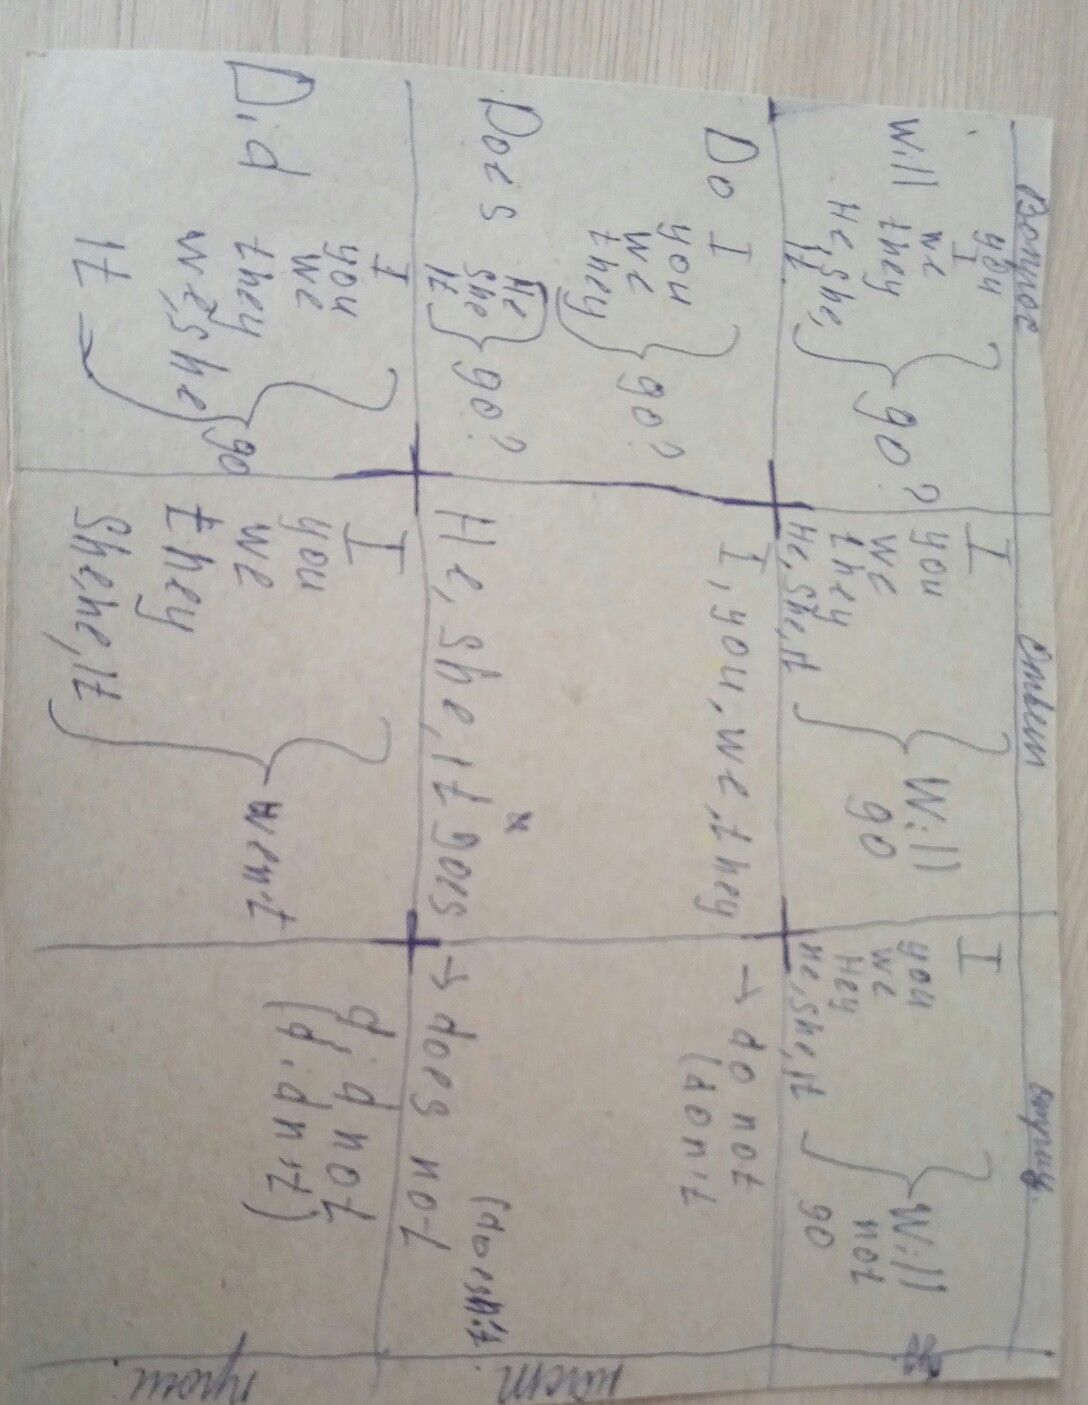 Вопрос
Ответ
отриц.
I
you
we
Will they
He, She,
It
go?
I
you
we
they
He, She, It
Will
go
I
you
we
Hey
He, She, It
Will
not
go
Do I
you
we
they
go?
Does He
She
It
go?
I, you, we, they
He, She, It goes
→ do not
(don't
→ does not
(doesn't.
наст
Did I
you
we
they
we, She
It
go
I
you
we
they
She, he, It
went
did not
(didn't)
прош